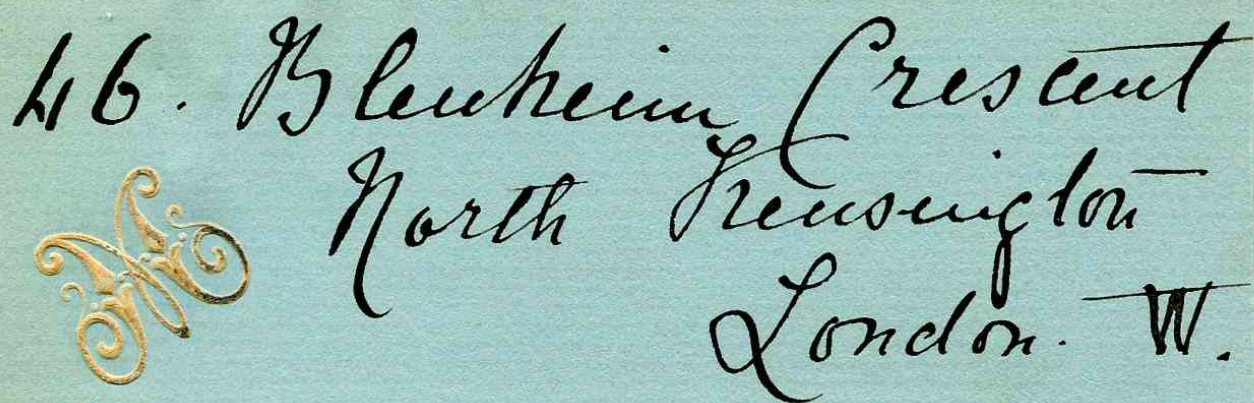 46. Blenheim Crescent
North Kensington
London. W.